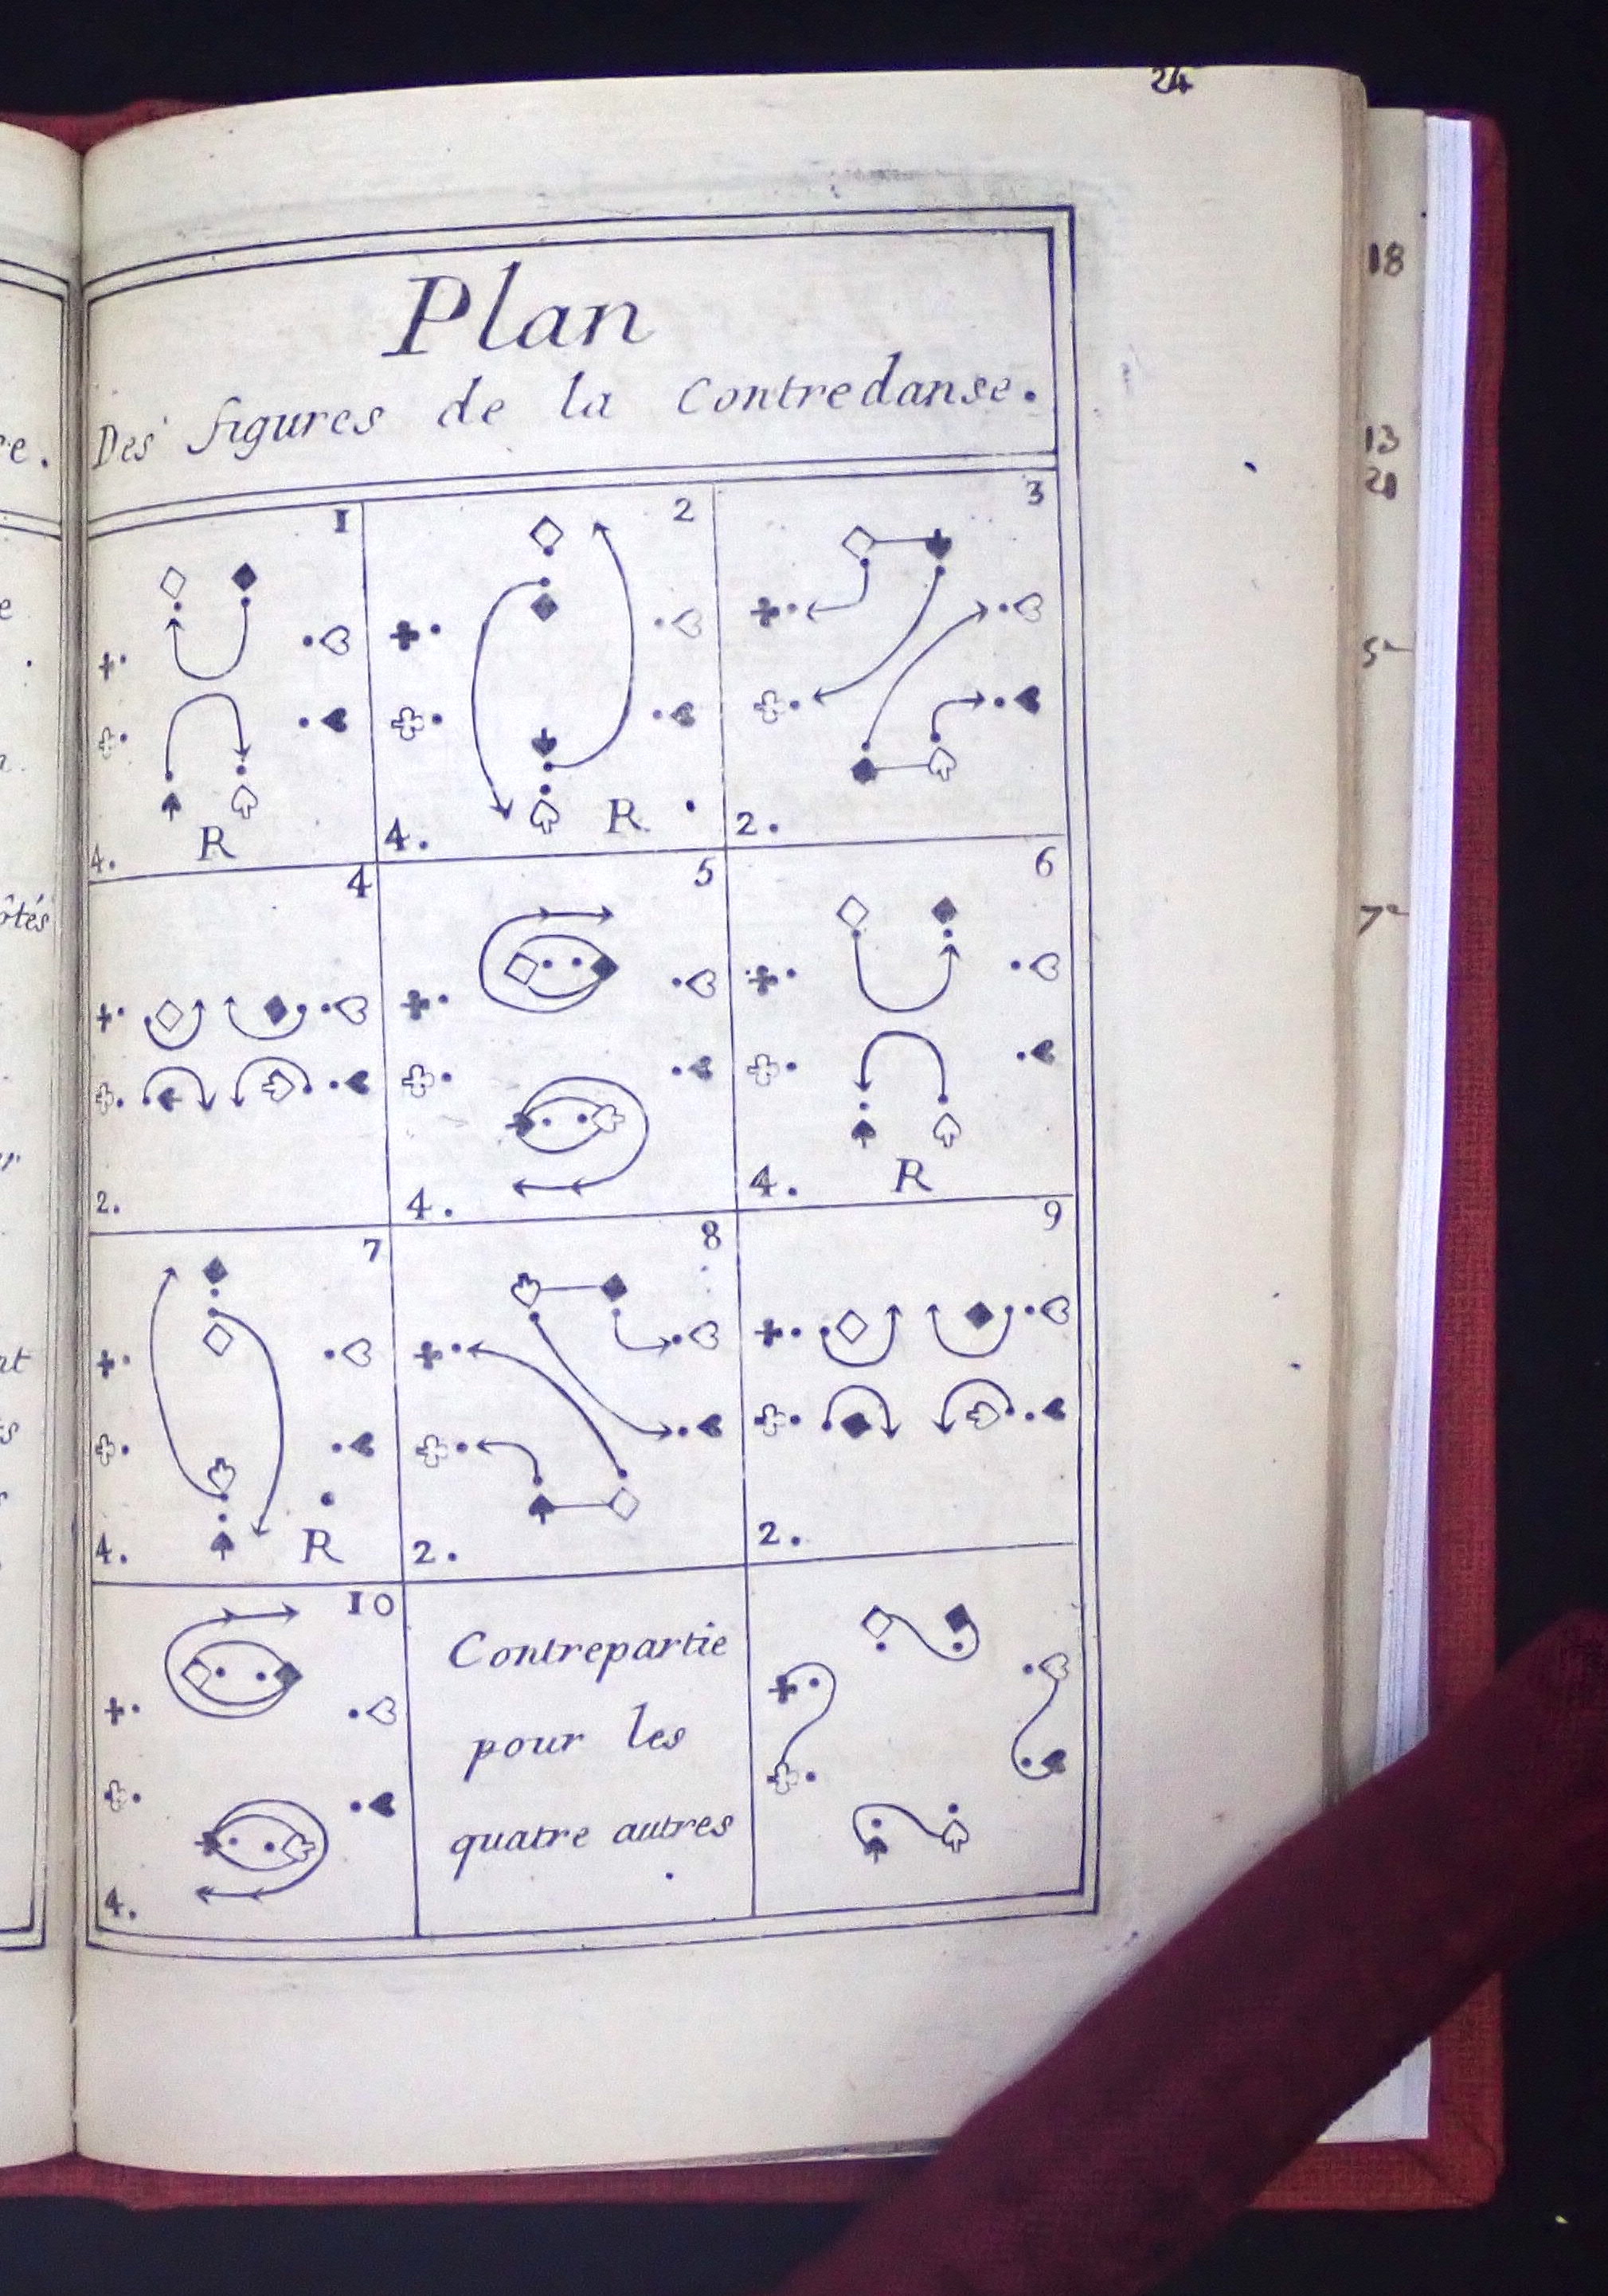 24
Plan
Des figures de la Contredanse.
1
4. R
2
4. R.
3
2.
4
2.
5
4.
6
4. R
7
4. R
8
2.
9
2.
10
4.
Contrepartie
pour les
quatre autres
re.
ôtés
18
13
21